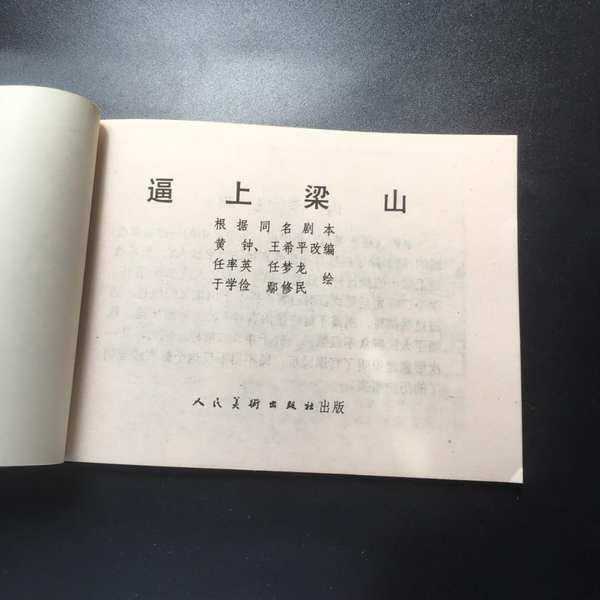 逼上梁山
根据同名剧本
黄钟、王希平改编
任率英 任梦龙
于学俭 鄢修民 绘
人民美術出版社出版